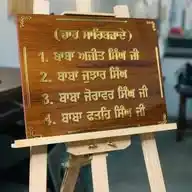 (ਚਾਰ ਸਾਹਿਬਜ਼ਾਦੇ)
1. ਬਾਬਾ ਅਜੀਤ ਸਿੰਘ ਜੀ
2. ਬਾਬਾ ਜੁਝਾਰ ਸਿੰਘ
3. ਬਾਬਾ ਜੋਰਾਵਰ ਸਿੰਘ ਜੀ
4. ਬਾਬਾ ਫਤਹਿ ਸਿੰਘ ਜੀ